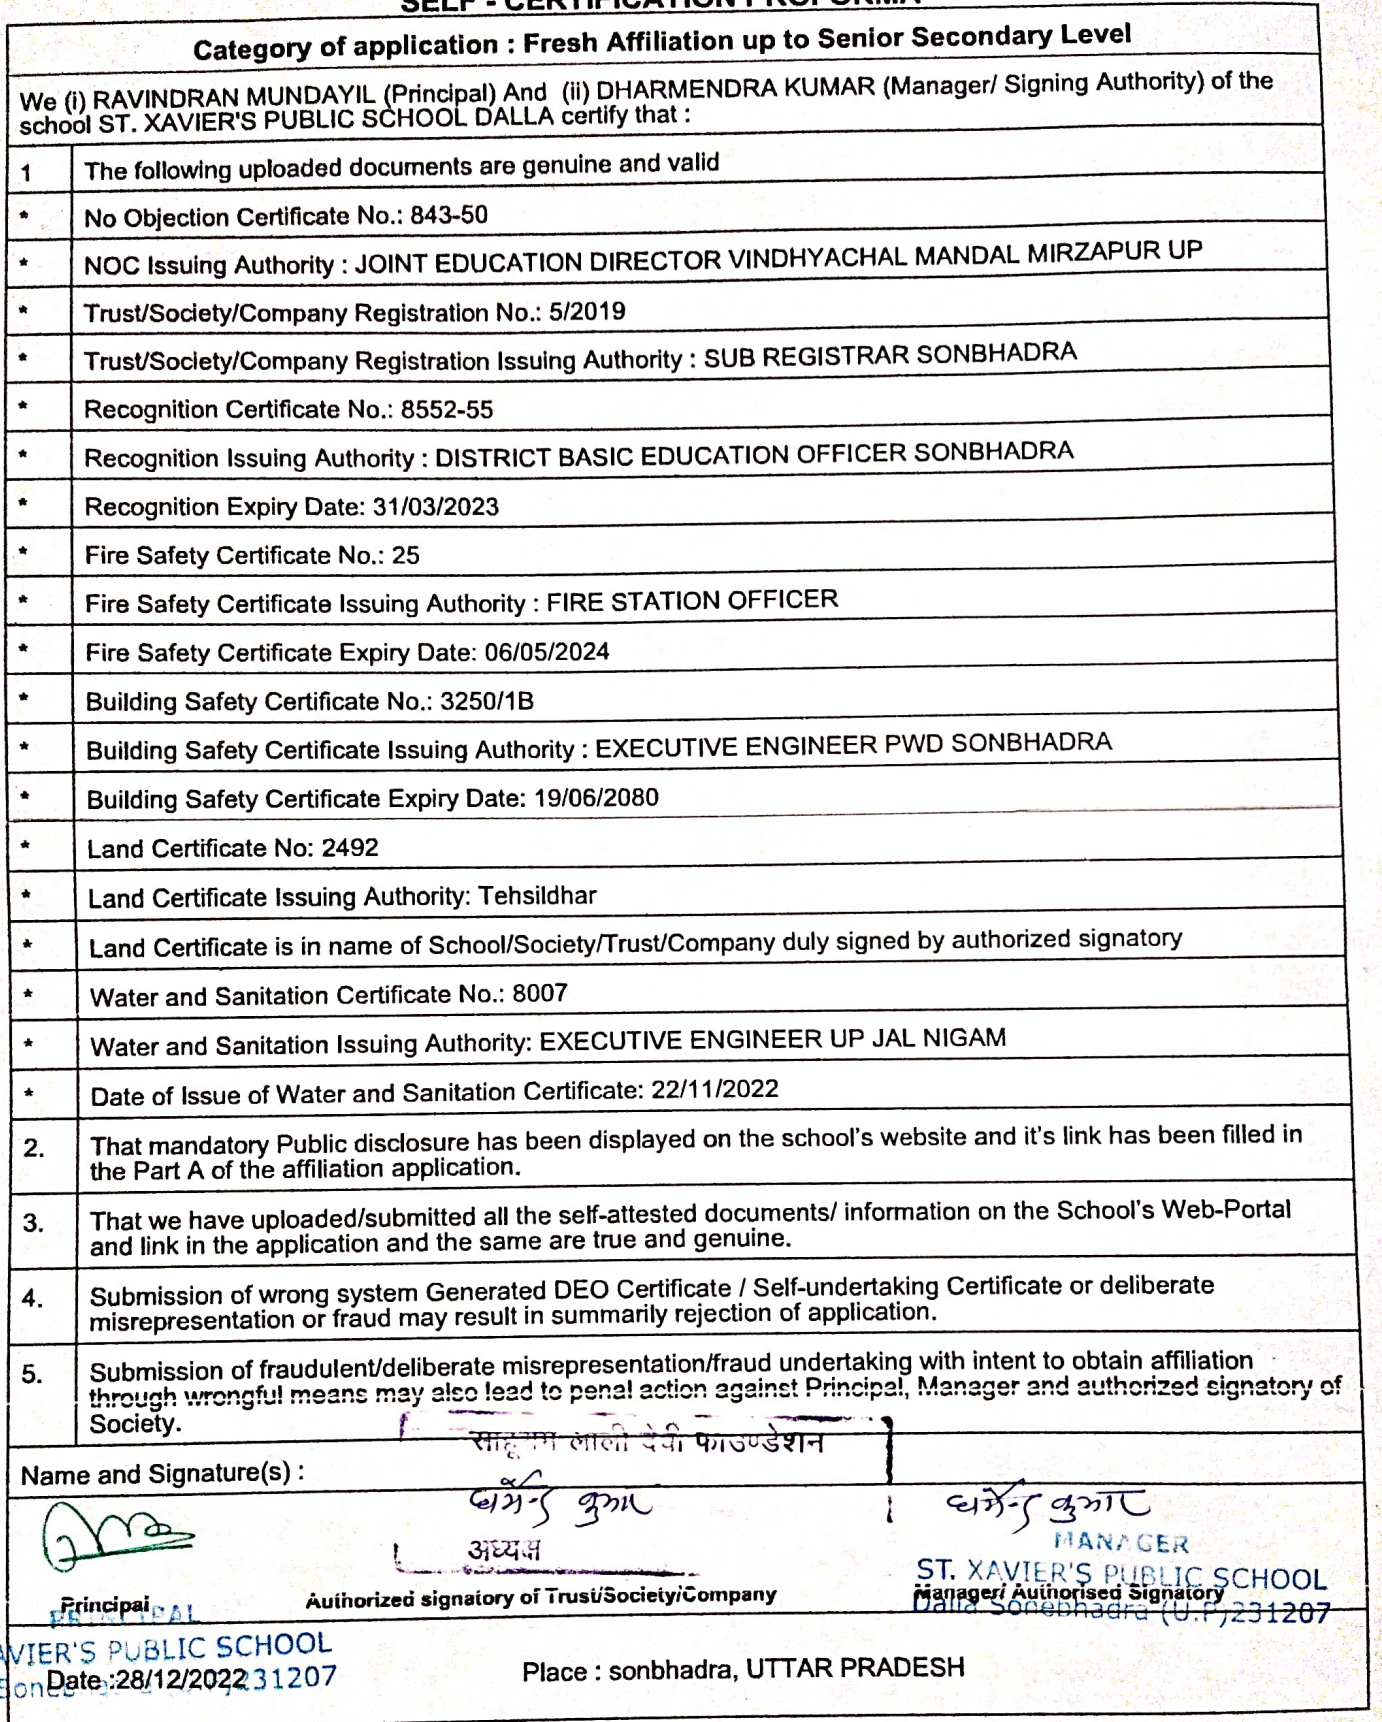 SELF - CERTIFICATION PROFORMA
Category of application : Fresh Affiliation up to Senior Secondary Level
We (i) RAVINDRAN MUNDAYIL (Principal) And (ii) DHARMENDRA KUMAR (Manager/ Signing Authority) of the
school ST. XAVIER'S PUBLIC SCHOOL DALLA certify that :
1 The following uploaded documents are genuine and valid
* No Objection Certificate No.: 843-50
* NOC Issuing Authority : JOINT EDUCATION DIRECTOR VINDHYACHAL MANDAL MIRZAPUR UP
* Trust/Society/Company Registration No.: 5/2019
* Trust/Society/Company Registration Issuing Authority : SUB REGISTRAR SONBHADRA
* Recognition Certificate No.: 8552-55
* Recognition Issuing Authority : DISTRICT BASIC EDUCATION OFFICER SONBHADRA
* Recognition Expiry Date: 31/03/2023
* Fire Safety Certificate No.: 25
* Fire Safety Certificate Issuing Authority : FIRE STATION OFFICER
* Fire Safety Certificate Expiry Date: 06/05/2024
* Building Safety Certificate No.: 3250/1B
* Building Safety Certificate Issuing Authority : EXECUTIVE ENGINEER PWD SONBHADRA
* Building Safety Certificate Expiry Date: 19/06/2080
* Land Certificate No: 2492
* Land Certificate Issuing Authority: Tehsildhar
* Land Certificate is in name of School/Society/Trust/Company duly signed by authorized signatory
* Water and Sanitation Certificate No.: 8007
* Water and Sanitation Issuing Authority: EXECUTIVE ENGINEER UP JAL NIGAM
* Date of Issue of Water and Sanitation Certificate: 22/11/2022
2. That mandatory Public disclosure has been displayed on the school's website and it's link has been filled in
the Part A of the affiliation application.
3. That we have uploaded/submitted all the self-attested documents/ information on the School's Web-Portal
and link in the application and the same are true and genuine.
4. Submission of wrong system Generated DEO Certificate / Self-undertaking Certificate or deliberate
misrepresentation or fraud may result in summarily rejection of application.
5. Submission of fraudulent/deliberate misrepresentation/fraud undertaking with intent to obtain affiliation
through wrongful means may also lead to penal action against Principal, Manager and authorized signatory of
Society.
लाली देवी फाउण्डेशन
Name and Signature(s) :
धर्मेन्द्र कुमार
धर्मेन्द्र कुमार
अध्यक्ष
MANAGER
ST. XAVIER'S PUBLIC SCHOOL
Principal
Authorized signatory of Trust/Society/Company
Manager/ Authorised Signatory
PRINCIPAL
Dalla Sonebhadra (U.P)231207
AVIER'S PUBLIC SCHOOL
Date :28/12/2022
231207
Place : sonbhadra, UTTAR PRADESH